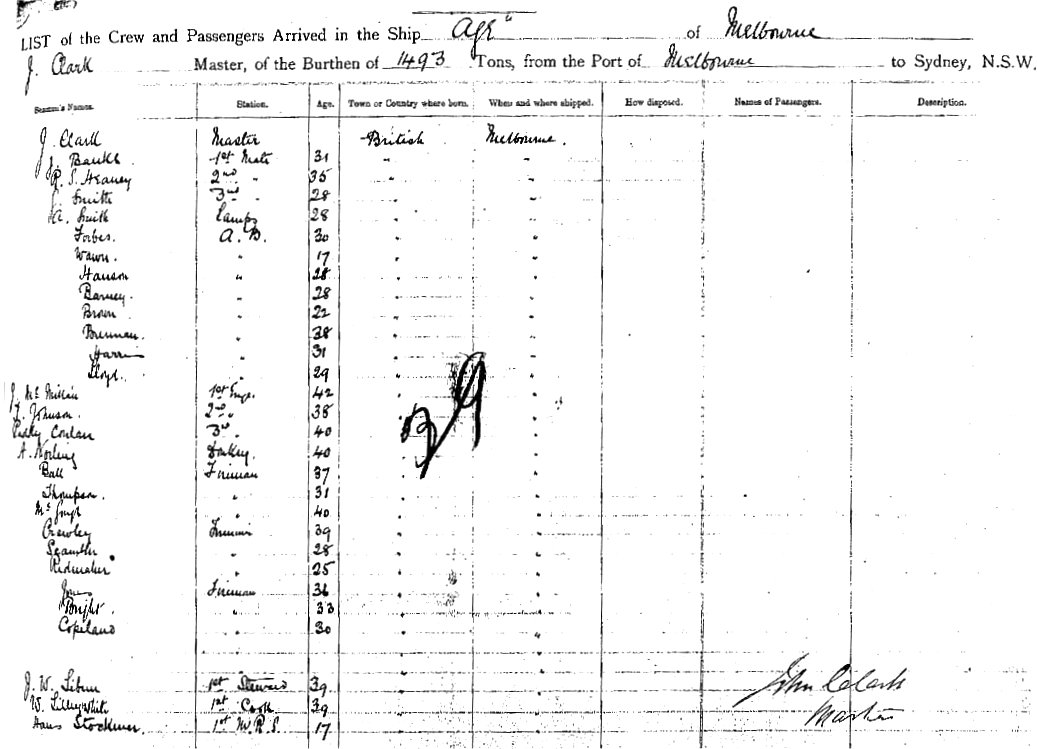 LIST of the Crew and Passengers Arrived in the Ship Age of Melbourne
J. Clark Master, of the Burthen of 1493 Tons, from the Port of Melbourne to Sydney, N.S.W.
Seaman's Names. Station. Age. Town or Country where born. When and where shipped. How disposed. Names of Passengers. Description.
J. Clark Master British Melbourne.
J. Banks 1st Mate 31 " "
R. S. Heaney 2nd " 35 " "
J. Smith 3rd " 28 " "
A. Smith Lamps 28 " "
Forbes. A. B. 30 " "
Wawn. " 17 " "
Hanson " 28 " "
Barney. " 28 " "
Brown " 22 " "
Brennan. " 38 " "
Harris " 31 " "
Lloyd. " 29 " "
J. Mc Millan 1st Engr. 42 " "
J. Johnson. 2nd " 38 " "
Conlan 3rd " 40 " "
A. Norling Donkey. 40 " "
Ball Fireman 37 " "
Thompson. " 31 " "
" 40 " "
Crowley 39 " "
" 28 " "
Ridmaker " 25 " "
Jones Fireman 36 " "
Bright. " 33 " "
Copeland " 30 " "
J. W. 1st Steward 39
W. Lillywhite 1st Cook 39
Hans Stockmer. 1st M.R.S. 17
John Clark
Master